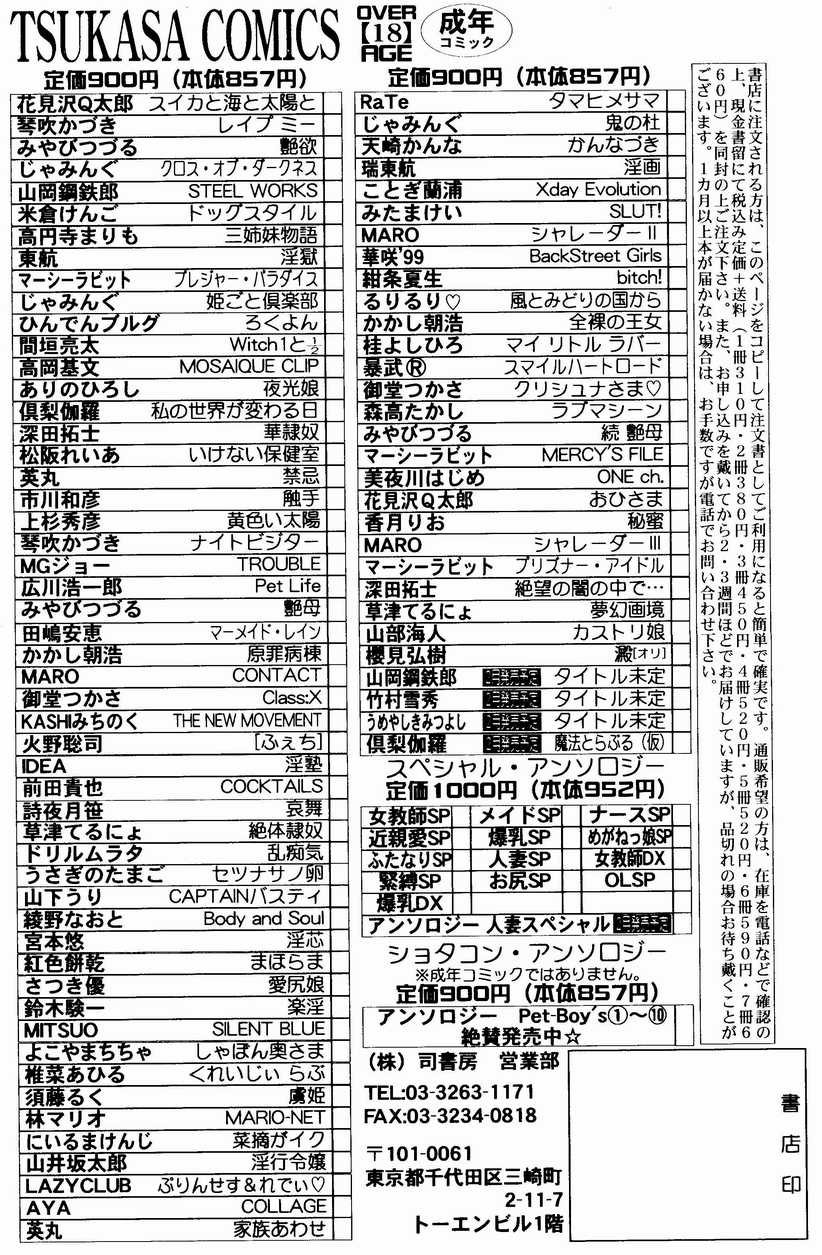 TSUKASA COMICS
OVER
【18】
AGE
成年
コミック
定価900円（本体857円）
花見沢Q太郎 スイカと海と太陽と
琴吹かづき レイプ ミー
みやびつづる 艶欲
じゃみんぐ クロス・オブ・ダークネス
山岡鋼鉄郎 STEEL WORKS
米倉けんご ドッグスタイル
高円寺まりも 三姉妹物語
東航 淫獄
マーシーラビット プレジャー・パラダイス
じゃみんぐ 姫ごと倶楽部
ひんでんブルグ ろくよん
間垣亮太 Witch1と½
高岡基文 MOSAIQUE CLIP
ありのひろし 夜光娘
倶梨伽羅 私の世界が変わる日
深田拓士 華隷奴
松阪れいあ いけない保健室
英丸 禁忌
市川和彦 触手
上杉秀彦 黄色い太陽
琴吹かづき ナイトビジター
MGジョー TROUBLE
広川浩一郎 Pet Life
みやびつづる 艶母
田嶋安恵 マーメイド・レイン
かかし朝浩 原罪病棟
MARO CONTACT
御堂つかさ Class:X
KASHIみちのく THE NEW MOVEMENT
火野聡司 [ふぇち]
IDEA 淫塾
前田貴也 COCKTAILS
詩夜月笹 哀舞
草津てるにょ 絶体隷奴
ドリルムラタ 乱痴気
うさぎのたまご セツナサノ卵
山下うり CAPTAINバスティ
綾野なおと Body and Soul
宮本悠 淫芯
紅色餅乾 まほらま
さつき優 愛尻娘
鈴木験一 楽淫
MITSUO SILENT BLUE
よこやまちちゃ しゃぼん奥さま
椎菜あひる くれいじぃ らぶ
須藤るく 虜姫
林マリオ MARIO-NET
にいるまけんじ 菜摘がイク
山井坂太郎 淫行令嬢
LAZYCLUB ぷりんせす＆れでぃ♡
AYA COLLAGE
英丸 家族あわせ
定価900円（本体857円）
RaTe タマヒメサマ
じゃみんぐ 鬼の杜
天崎かんな かんなづき
瑞東航 淫画
ことぎ蘭浦 Xday Evolution
みたまけい SLUT!
MARO シャレーダーⅡ
華咲'99 BackStreet Girls
紺条夏生 bitch!
るりるり♡ 風とみどりの国から
かかし朝浩 全裸の王女
桂よしひろ マイ リトル ラバー
暴武Ⓡ スマイルハートロード
御堂つかさ クリシュナさま♡
森高たかし ラブマシーン
みやびつづる 続 艶母
マーシーラビット MERCY'S FILE
美夜川はじめ ONE ch.
花見沢Q太郎 おひさま
香月りお 秘蜜
MARO シャレーダーⅢ
マーシーラビット プリズナー・アイドル
深田拓士 絶望の闇の中で…
草津てるにょ 夢幻画境
山部海人 カストリ娘
櫻見弘樹 澱[オリ]
山岡鋼鉄郎 タイトル未定
竹村雪秀 タイトル未定
うめやしきみつよし タイトル未定
倶梨伽羅 魔法とらぶる（仮）
スペシャル・アンソロジー
定価1000円（本体952円）
女教師SP メイドSP ナースSP
近親愛SP 爆乳SP めがねっ娘SP
ふたなりSP 人妻SP 女教師DX
緊縛SP お尻SP OLSP
爆乳DX
アンソロジー 人妻スペシャル
ショタコン・アンソロジー
※成年コミックではありません。
定価900円（本体857円）
アンソロジー Pet-Boy's①〜⑩
絶賛発売中☆
（株）司書房 営業部
TEL:03-3263-1171
FAX:03-3234-0818
〒101-0061
東京都千代田区三崎町
2-11-7
トーエンビル1階
書店に注文される方は、このページをコピーして注文書としてご利用になると簡単で確実です。通販希望の方は、在庫を電話などで確認の
上、現金書留にて税込み定価＋送料（1冊310円・2冊380円・3冊450円・4冊520円・5冊520円・6冊590円・7冊6
60円）を同封の上ご注文下さい。また、お申し込みを戴いてから2・3週間ほどでお届けしていますが、品切れの場合お待ち戴くことが
ございます。1カ月以上本が届かない場合は、お手数ですが電話でお問い合わせ下さい。
書店印